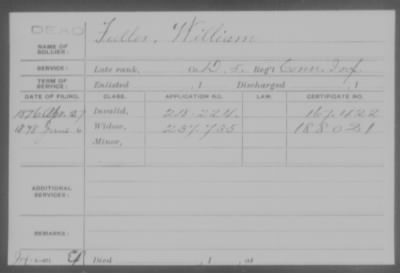 DEAD
NAME OF SOLDIER: Fuller, William
SERVICE: Late rank, Co. D. 5. Reg't Conn. Inf.
TERM OF SERVICE: Enlisted , 1 Discharged , 1
DATE OF FILING. CLASS. APPLICATION NO. LAW. CERTIFICATE NO.
1876 Apr. 27 Invalid, 218.224.
1878 June 6 Widow, 237.735 188021
Minor,
ADDITIONAL SERVICES:
REMARKS:
Died , 1 , at